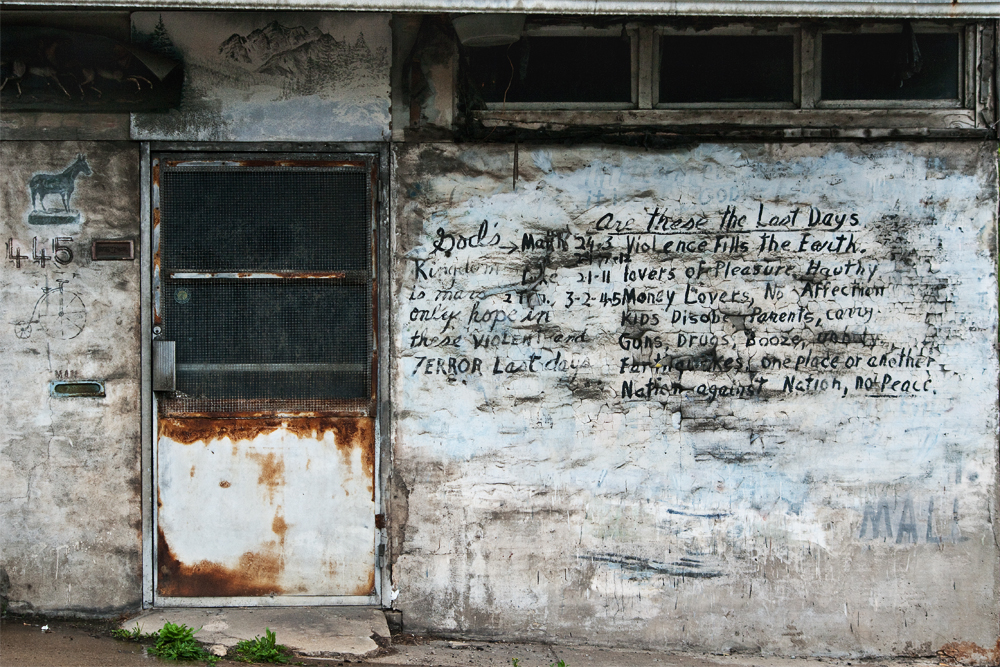 445
MAIL
Are these the Last Days
God's → Matt 24-3 Violence Fills the Earth.
Kingdom Luke 21-11 lovers of Pleasure, Hauthy
is mans 2 Tim. 3-2-4-5 Money Lovers, No Affection
only hope in Kids Disobe Parents, carry
these VIOLENT and Guns, Drugs, Booze,
TERROR Last days Earthquakes, one place or another
Nation against Nation, no Peace.
MALL